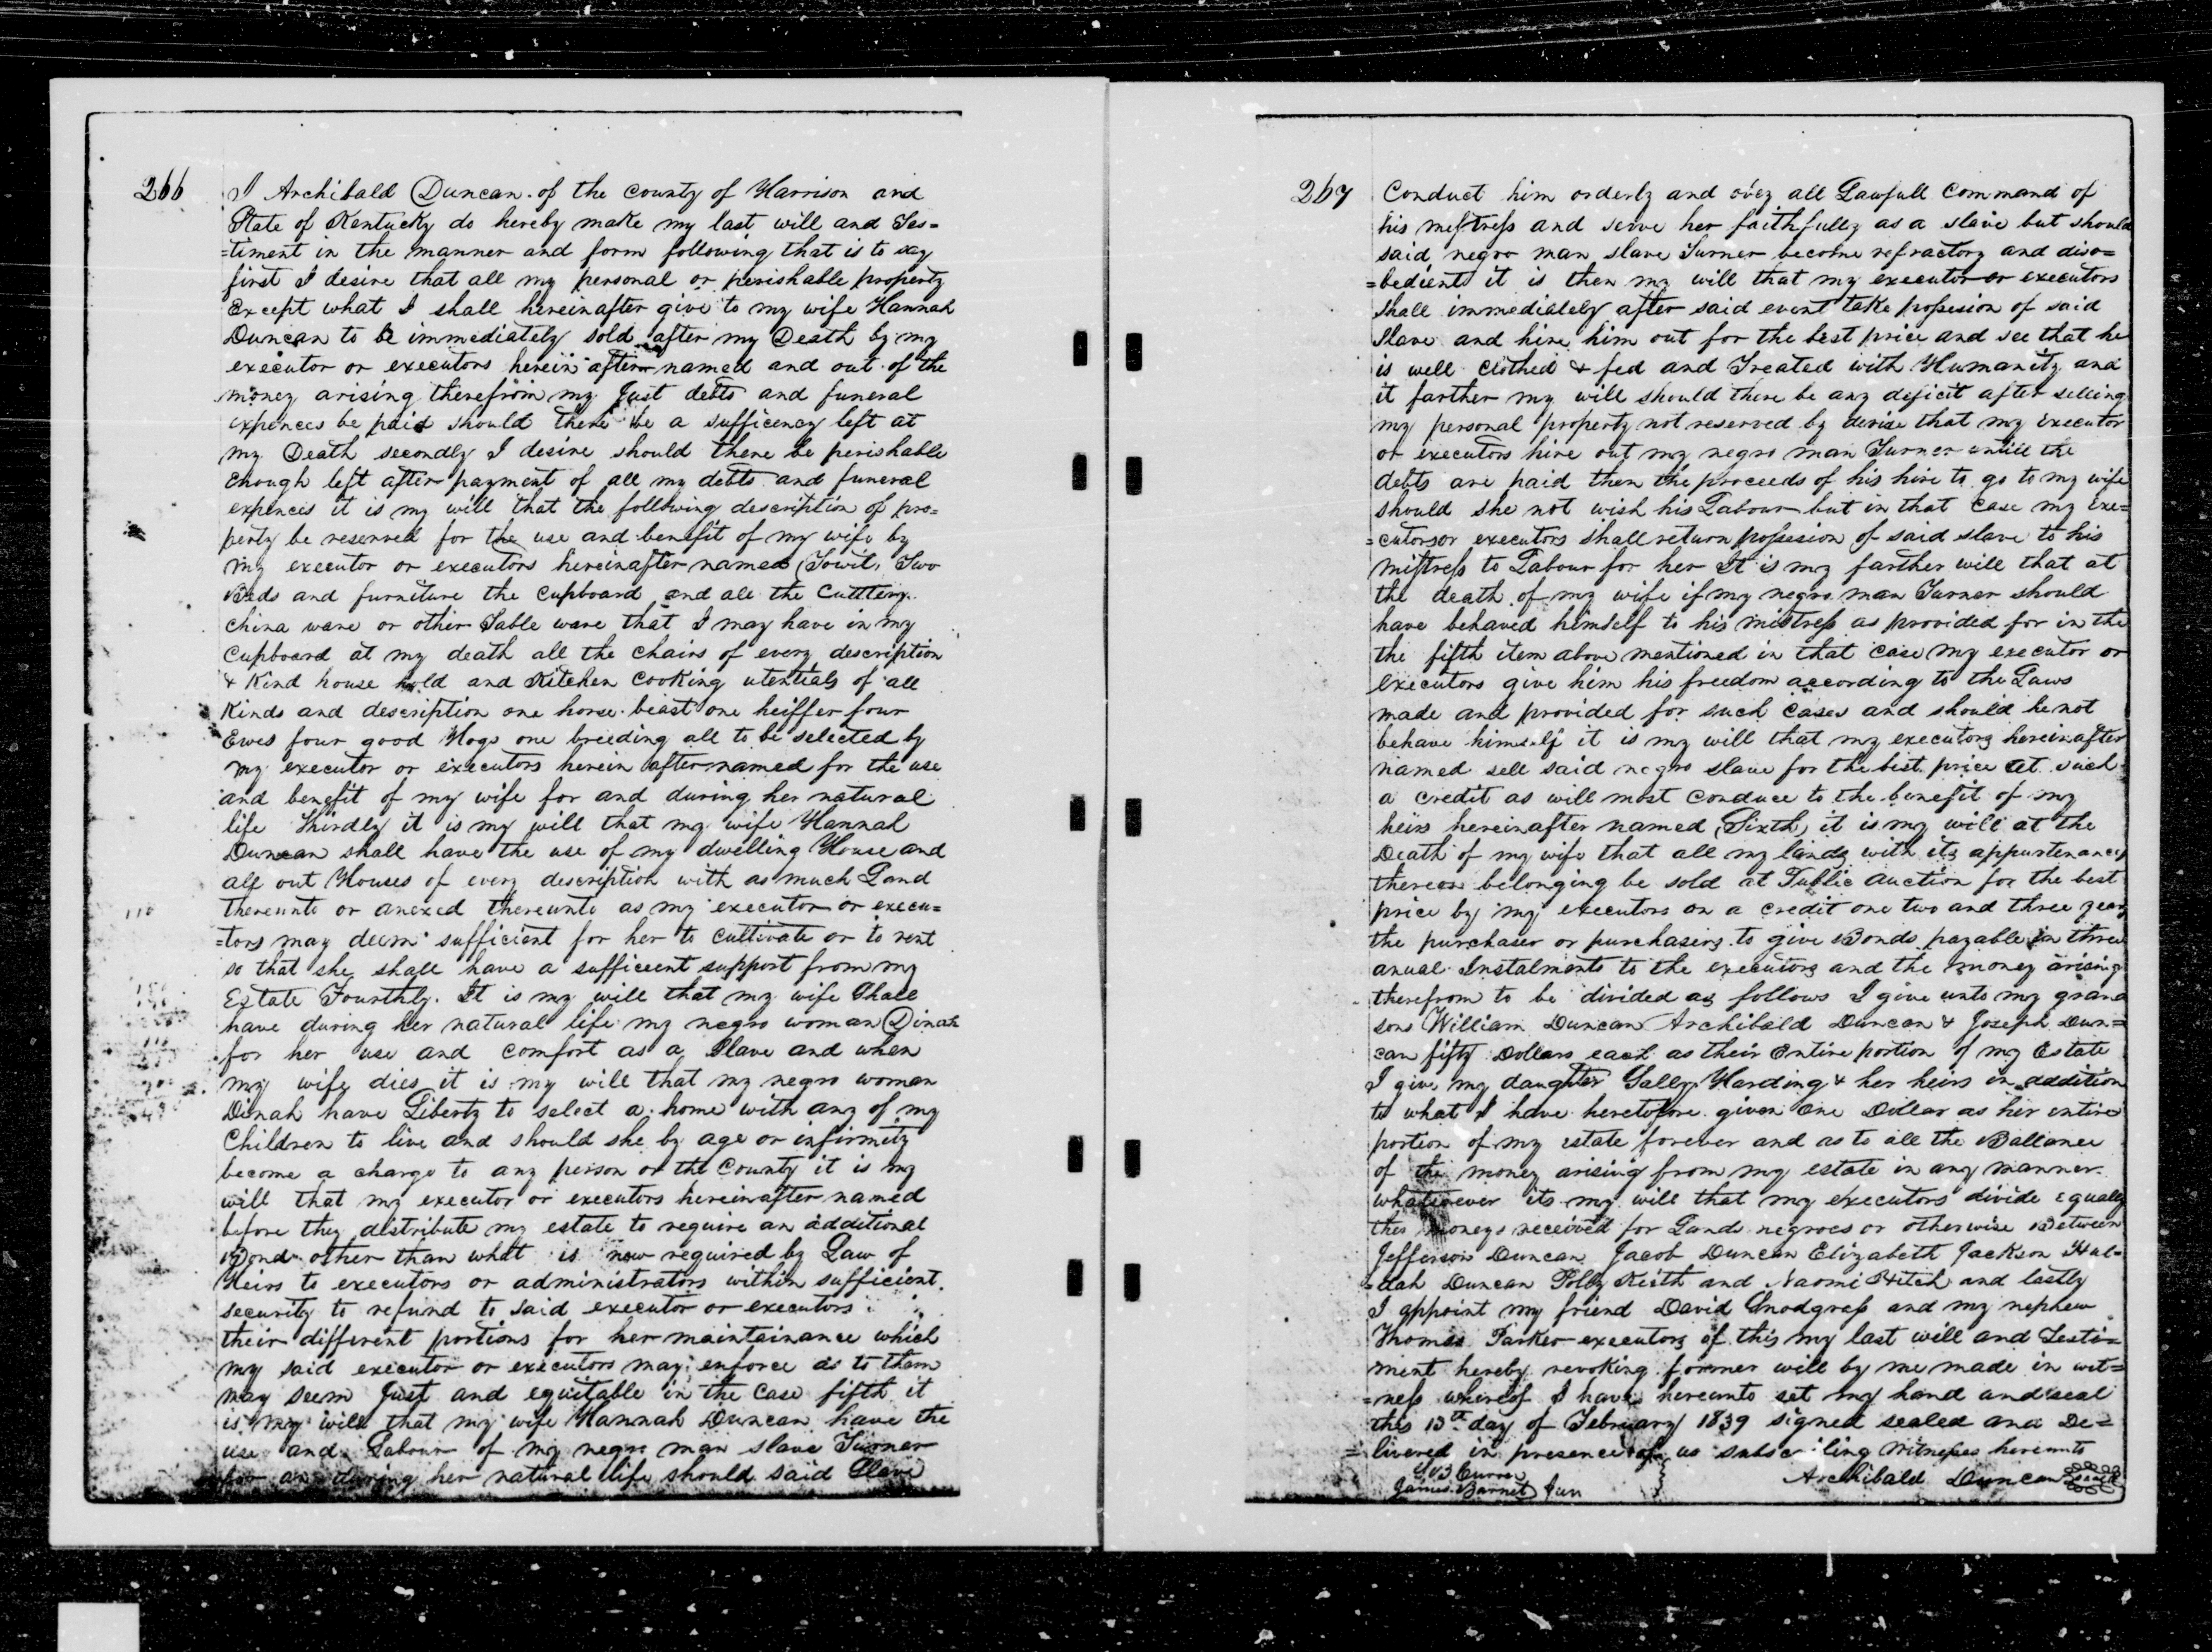 266
I Archibald Duncan of the County of Harrison and
State of Kentucky do hereby make my last will and Tes=
=timent in the manner and form following that is to say
first I desire that all my personal or perishable property
Except what I shall hereinafter give to my wife Hannah
Duncan to be immediately sold after my Death by my
executor or executors herein after named and out of the
money arising therefrom my Just debts and funeral
expences be paid should there be a sufficency left at
my Death secondly I desire should there be perishable
enough left after payment of all my debts and funeral
expences it is my will that the following description of pro=
perty be reserved for the use and benefit of my wife by
my executor or executors hereinafter named (Towit, Two
Beds and furniture the Cupboard and all the Cuttlery.
China ware or other Table ware that I may have in my
Cupboard at my death all the chairs of every description
& Kind house hold and Kitchen Cooking utentials of all
Kinds and description one horse beast one heiffer four
Ewes four good Hogs one breeding all to be selected by
my executor or executors herein after named for the use
and benefit of my wife for and during her natural
life Thirdly it is my will that my wife Hannah
Duncan shall have the use of my dwelling House and
all out Houses of every description with as much Land
thereunto or anexed thereunto as my executor or execu=
=tors may deem sufficient for her to Cultivate or to rent
so that she shall have a sufficient support from my
Estate Fourthly. It is my will that my wife Shall
have during her natural life my negro woman Dinah
for her use and comfort as a Slave and when
my wife dies it is my will that my negro woman
Dinah have Liberty to select a home with any of my
Children to live and should she by age or infirmity
become a charge to any person or the County it is my
will that my executor or executors hereinafter named
before they distribute my estate to require an additional
Bond other than what is now required by Law of
Heirs to executors or administrators within sufficient.
security to refund to said executor or executors
their different portions for her maintainance which
my said executor or executors may enforce as to them
may seem Just and equitable in the case fifth it
is my will that my wife Hannah Duncan have the
use and Labour of my negro man slave Turner
for an during her natural life should said Slave
267
Conduct him orderly and obey all Lawfull Command of
his mestress and serve her faithfully as a slave but should
said negro man slave Turner become refractory and diso=
=bedient it is then my will that my executor or executors
shall immediately after said event take possesion of said
slave and hire him out for the best price and see that he
is well clothed & fed and Treated with Humanity and
it farther my will should there be any deficit after selling
my personal property not reserved by devise that my executor
or executors hire out my negro man Turner untill the
debts are paid then the proceeds of his hire to go to my wife
should she not wish his Labour but in that case my exe=
=cutorsor executors shall return possesion of said slave to his
mistress to Labour for her It is my farther will that at
the death of my wife if my negro man Turner should
have behaved himself to his mistress as provided for in the
the fifth item above mentioned in that case my executor or
executors give him his freedom according to the Laws
made and provided for such Cases and should he not
behave himself it is my will that my executors hereinafter
named sell said negro slave for the best price at such
a credit as will most conduce to the benefit of my
heirs hereinafter named (Sixth) it is my will at the
Death of my wife that all my lands with its appurtenances
thereon belonging be sold at Public auction for the best
price by my executors on a credit one two and three years
the purchaser or purchasers to give Bonds payable in three
anual Instalments to the executors and the money arising
therefrom to be divided as follows I give unto my grand
sons William Duncan Archibald Duncan & Joseph Dun=
can fifty Dollars each as their Entire portion of my Estate
I give my daughter Sally Harding & her heirs in addition
to what I have heretofore given One Dollar as her entire
portion of my estate forever and as to all the Ballance
of the money arising from my estate in any manner
whatsoever its my will that my executors divide equally
this moneys received for Lands negroes or otherwise Between
Jefferson Duncan Jacob Duncan Elizabeth Jackson Hul=
=dah Duncan Polly Keith and Naomi Hitch and lastly
I appoint my friend David Snodgrass and my nephew
Thomas Parker executors of this my last will and Testi=
ment hereby revoking former will by me made in wit=
=ness whereof I have hereunto set my hand and seal
this 13th day of February 1839 signed sealed and De=
=livered in presence of us subscribing Witnesses hereunto
Curran
James Barnet Jun
Archibald Duncan Seal